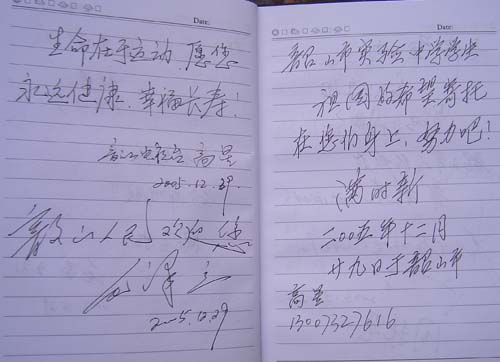 Date:
生命在于运动,愿您
永远健康、幸福长寿!
韶山电视台 高星
2005.12.29.
韶山人民欢迎您
2005.12.29
Date:
韶山市实验中学学生
祖国的希望寄托
在您们身上,努力吧!
满时新
二00五年十二月
廿九日于韶山市
高星
13007327616